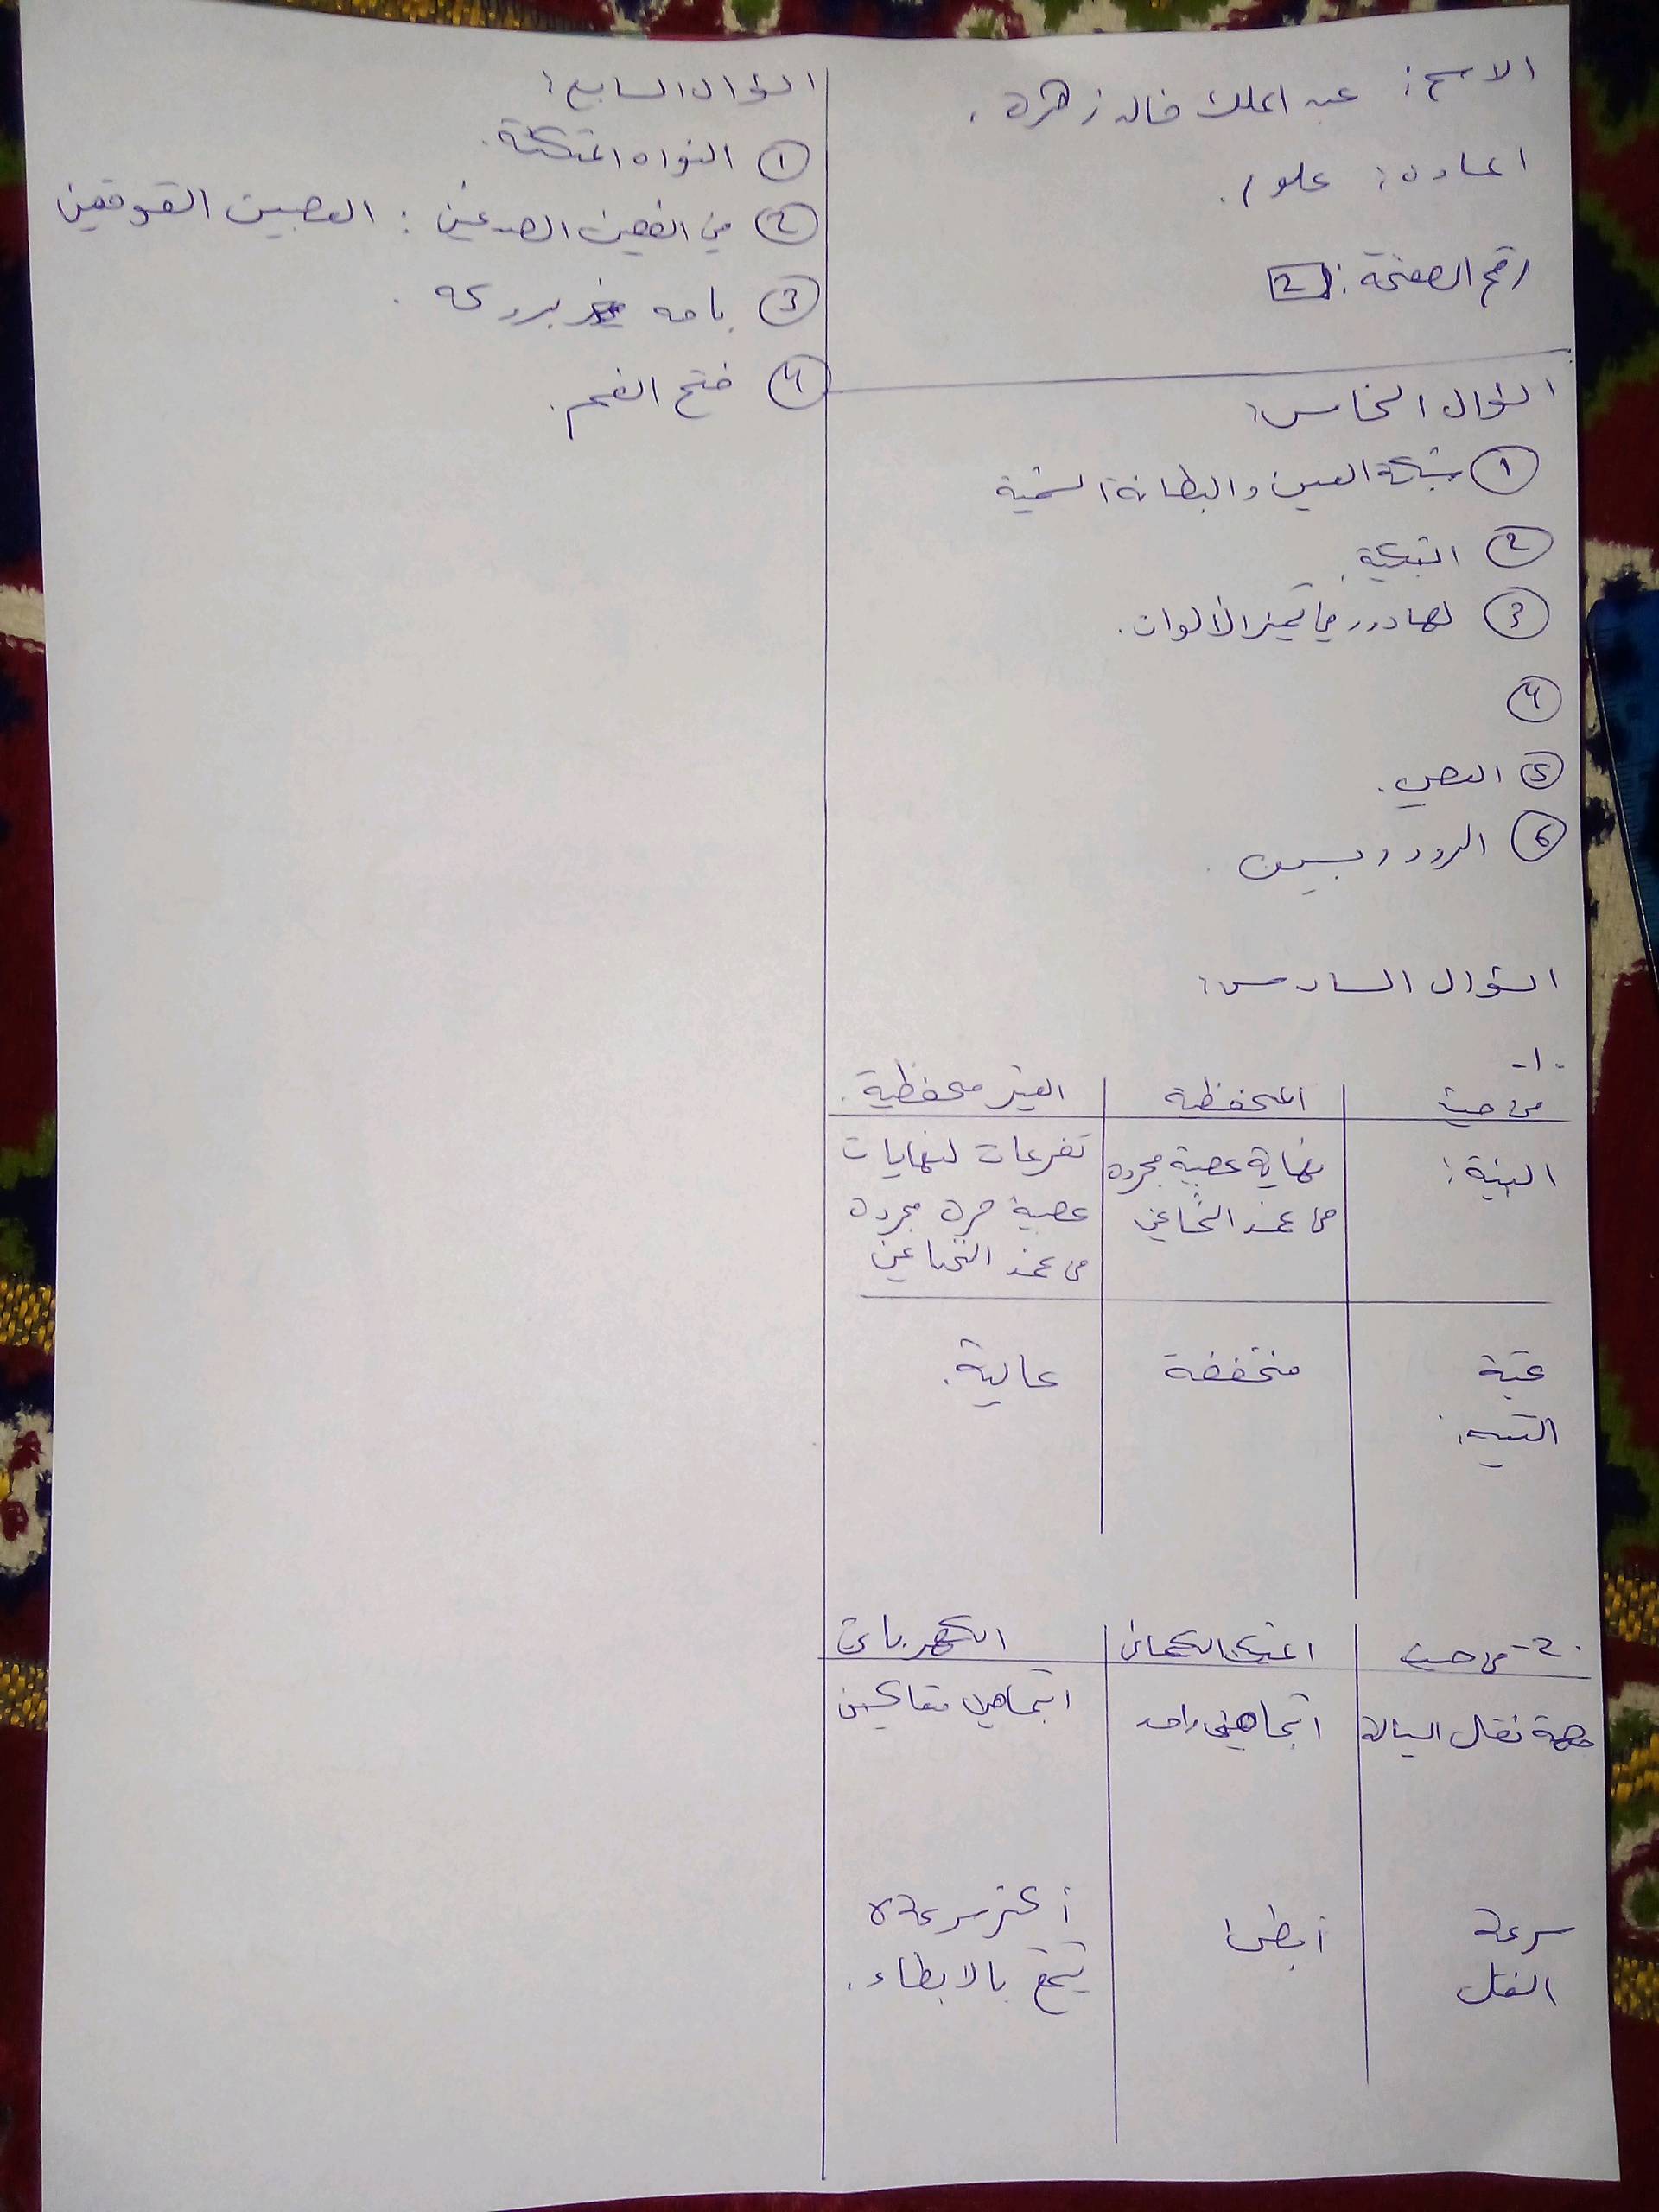 الاسم: عبد الملك خالد زهرة.
المادة: علوم.
رقم الصفحة: 2
السؤال الخامس:
① شبكة العين والبطانة الشمية
② الشبكية.
③ لها دور في تميز الألوان.
④
⑤ العصبي.
⑥ الرودوبسين.
السؤال السادس:
-1-
من حيث المحفظة الغير محفظية.
البنية: نهاية عصبية مجردة تفرعات لنهايات
من غمد النخاعين عصبية حرة مجردة
من غمد النخاعين
عتبة منخفضة عالية.
التنبيه:
2- من حيث المشبك الكيميائي الكهربائي
جهة نقل السيالة اتجاه واحد اتجاهين متعاكسين
سرعة أبطئ أكثر سرعة لا
النقل يتمتع بالابطاء.
السؤال السابع:
① النواه المتكئة.
② في الفصين الصدغين: العصبين القوقعين
③ بروكه.
④ فتح الفم.